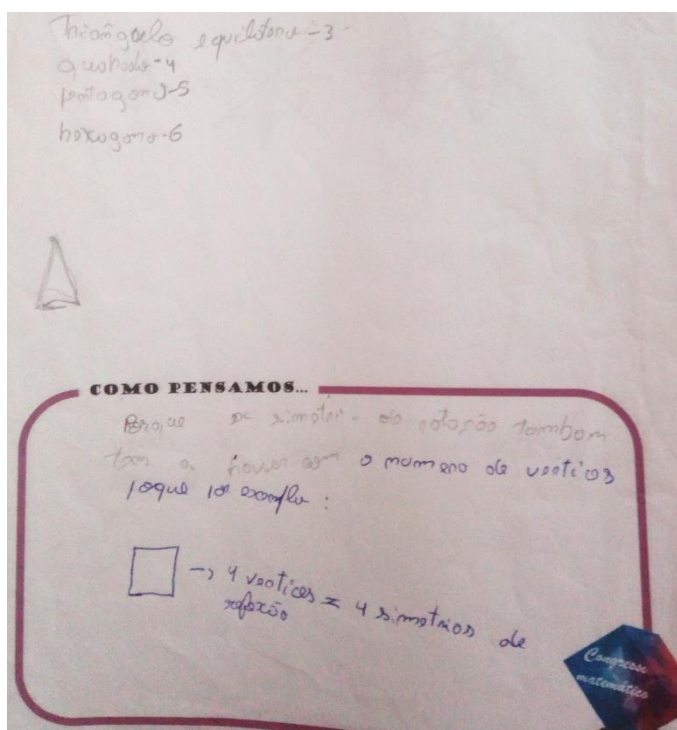 triângulo equilátero = 3
quadrado - 4
pentagono - 5
hexagono - 6
COMO PENSAMOS...
Porque as simetri de rotação tambem
tem a haver com o numero de vertices
porque por exemplo :
→ 4 vertices = 4 simetrias de
reflexão
Congresso
matemático